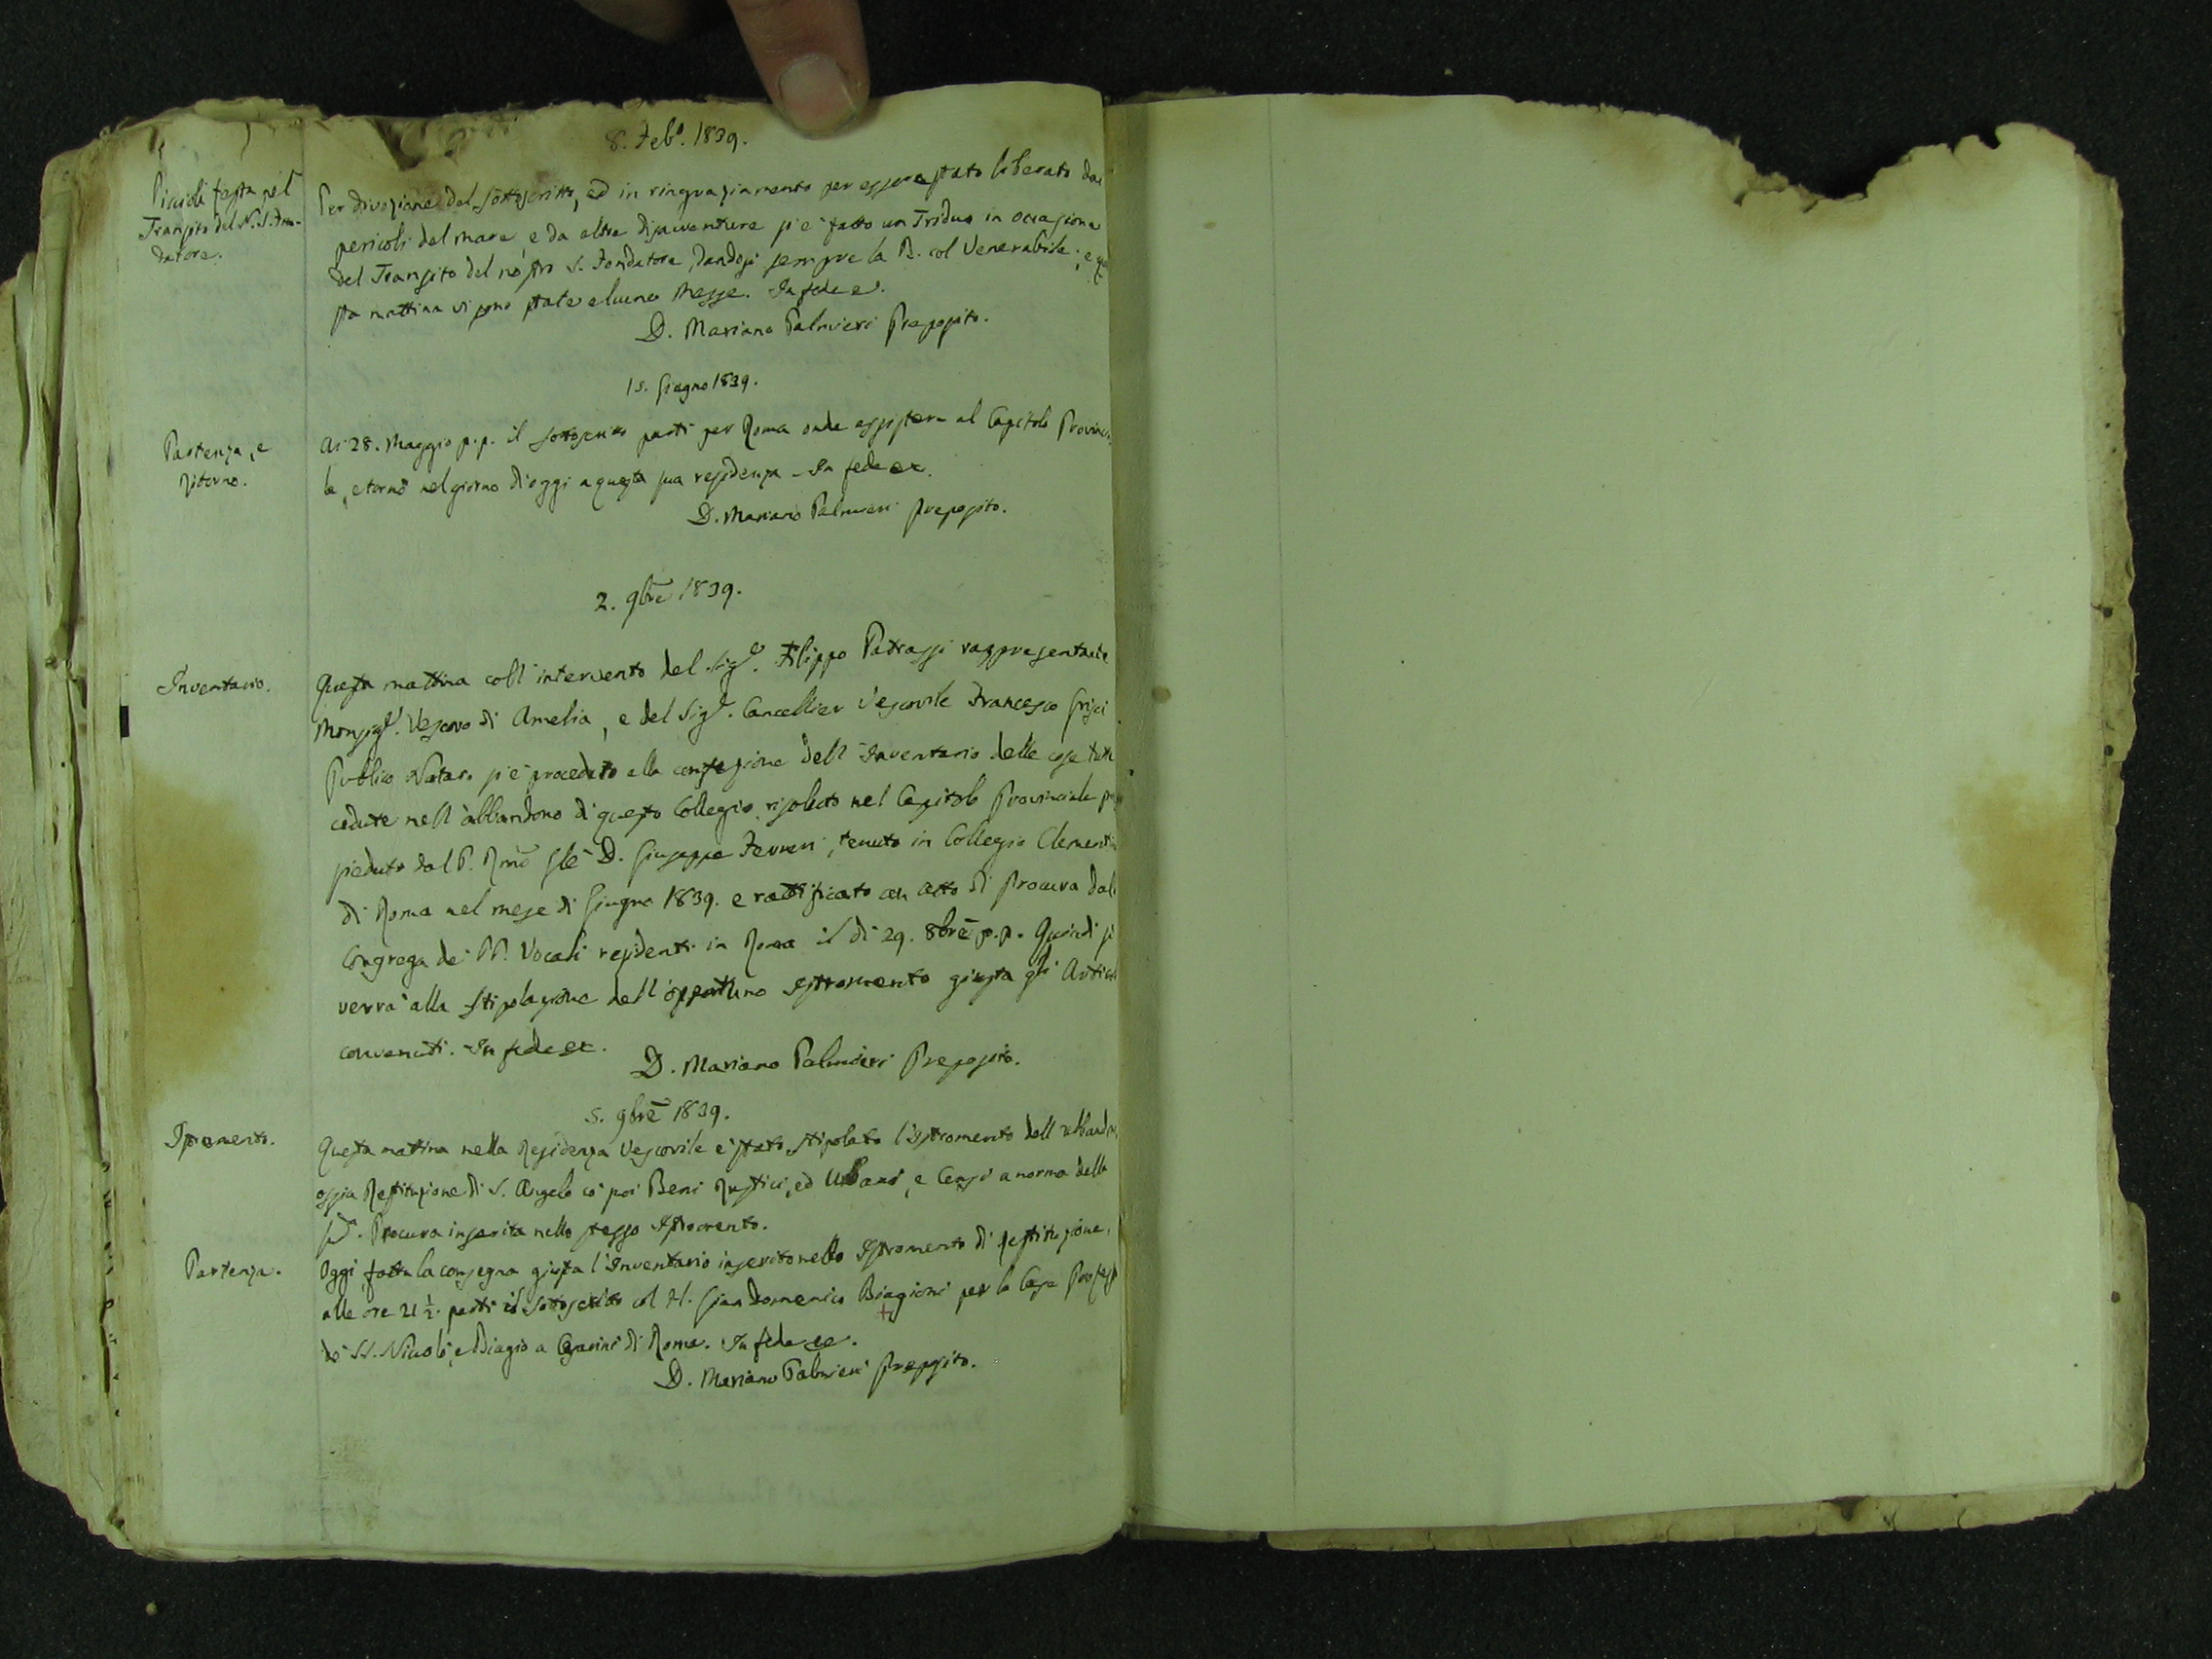 8. Feb.o 1839.
Piccola festa pel
Transito del N. S. Fon-
datore.
Per divozione del sottoscritto, ed in ringraziamento per essere stato liberato dai
pericoli del mare e da altre disavventure si è fatto un Triduo in occasione
del Transito del nostro S. Fondatore, dandosi sempre la B. col Venerabile; e que
sta mattina vi sono state alcune Messe. In fede e.
D. Mariano Palmieri Preposito.
15. Giugno 1839.
Partenza, e
ritorno.
Ai 28. Maggio p.p. il sottoscritto partì per Roma onde assistere al Capitolo Provincia
le, e tornò nel giorno d'oggi a questa sua residenza - In fede ec.
D. Mariano Palmieri Preposito.
2. 9bre 1839.
Inventario.
Questa mattina coll'intervento del Sig.e Filippo Patrassi rappresentante
Monsig.r Vescovo di Amelia, e del Sig.e Cancellier Vescovile Francesco Grisci
Publico Notaro si è proceduto alla confezione dell'Inventario delle cose tutte
cedute nell'abbandono di questo Collegio, risoluto nel Capitolo Provinciale pre
sieduto dal P. Rmo Gle D. Giuseppe Ferreri, tenuto in Collegio Clementi
di Roma nel mese di Giugno 1839. e rattificato con atto di Procura dal
Congrega de' PP. Vocali residenti in Roma il dì 29. 8bre p.p. Quindi si
verrà alla stipolazione dell'opportuno Istromento giusta gli Articoli
convenuti. In fede ec.
D. Mariano Palmieri Preposito.
5. 9bre 1839.
Istromento.
Questa mattina nella Residenza Vescovile è stato stipolato l'Istromento dell'abband
ossia Restituzione di S. Angelo co' suoi Beni Rustici, ed Urbani, e Censi a norma della
Procura inserita nello stesso Istromento.
Partenza.
Oggi fatta la consegna giusta l'Inventario inserito nello Istromento di restituzione,
alle ore 21 1/2. partì il sottoscritto col H. Gian Domenico Biagioni per la Casa Profess
de' SS. Nicolò, e Biagio a Cesarini di Roma. In fede ec.
D. Mariano Palmieri Preposito.